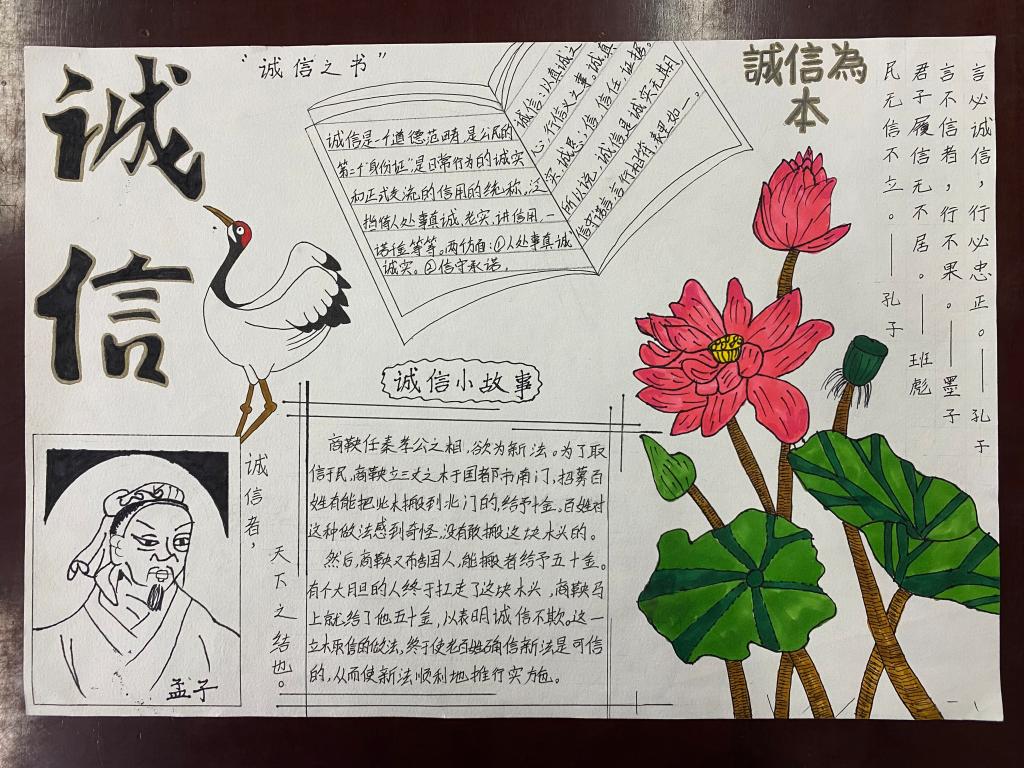 诚信
“诚信之书”
诚信是一个道德范畴,是公民的
第二个“身份证”是日常行为的诚实
和正式交流的信用的统称。泛
指待人处事真诚、老实、讲信用,一
诺千金等等。两仿面:①人处事真诚
诚实。②信守承诺。
诚信:以真诚之
心,行信义之事。诚真
实,诚恳;信,信任,证据。
所以说,诚信是诚实无期,
信守诺言,言行相符,表里如一。
誠信為
本
言必诚信,行必忠正。——孔子
言不信者,行不果。——墨子
君子履信无不居。——班彪
民无信不立。——孔子
诚信小故事
商鞅任秦孝公之相,欲为新法。为了取
信于民,商鞅立三丈之木于国都市南门,招募百
姓有能把此木搬到北门的,给予十金。百姓对
这种做法感到奇怪,没有敢搬这块木头的。
然后,商鞅又布告国人,能搬者给予五十金。
有个大胆的人终于扛走了这块木头,商鞅马
上就给了他五十金,以表明诚信不欺。这一
立木取信的做法,终于使老百姓确信新法是可信
的,从而使新法顺利地推行实施。
诚信者,
天下之结也。
孟子